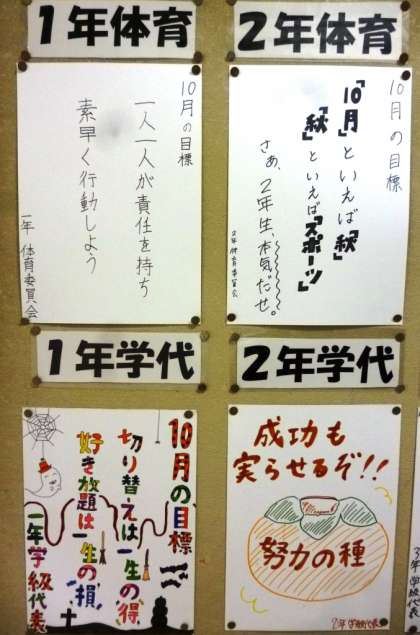 1年体育
10月の目標
一人一人が責任を持ち
素早く行動しよう
一年 体育委員会
2年体育
10月の目標
「10月」といえば「秋」
「秋」といえば「スポーツ」
さぁ、2年生、本気だせ。
2年体育委員会
1年学代
10月の、目標
切り替えは一生の得、
好き放題は一生の損、
一年学級代表
2年学代
成功も
実らせるぞ!!
努力の種
2年 学級代表